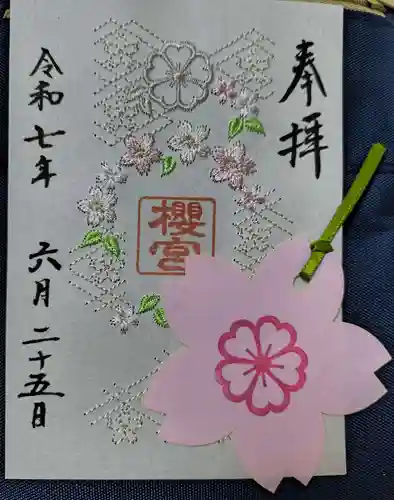 奉拝
櫻宮
令和七年 六月二十五日